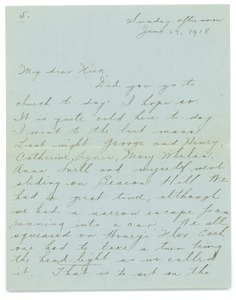 5.
Sunday afternoon
1918
My dear
Did you go to
church to day? I hope so.
It is quite cold here to day
I went to the last mass.
Last night George and Henry,
Catherine, Agnes, Mary Whelan,
Anna and myself went
sliding on Beacon Hill. We
had a great time, although
we had a narrow escape from
running into a car. We all
squeezed on Henry's Flox. Each
one had to take a turn being
the head light as we called
it. That is to sit on the